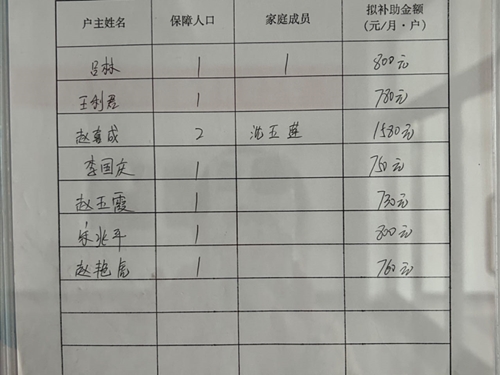 户主姓名 保障人口 家庭成员 拟补助金额
(元/月·户)
吕林 1 1 800元
王利君 1 780元
赵喜成 2 沈玉莲 1580元
李国欣 1 750元
赵玉霞 1 730元
宋兆平 1 800元
赵艳虎 1 760元